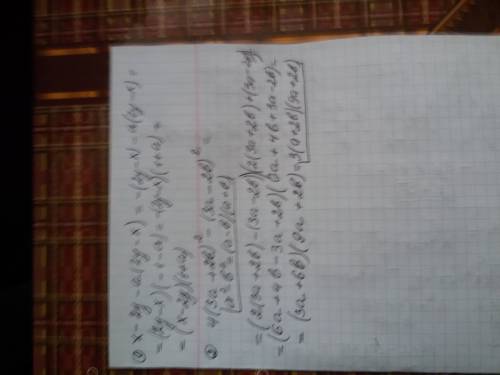 ① x-2y-a(2y-x)=-(2y-x)-a(2y-x)=
=(2y-x)(-1-a)=-(2y-x)(1+a)=
=(x-2y)(1+a)
② 4(3a+2b)²-(3a-2b)²=
a²-b²=(a-b)(a+b)
=(2(3a+2b)-(3a-2b))(2(3a+2b)+(3a-2b))
=(6a+4b-3a+2b)(6a+4b+3a-2b)=
=(3a+6b)(9a+2b)=3(a+2b)(9a+2b)